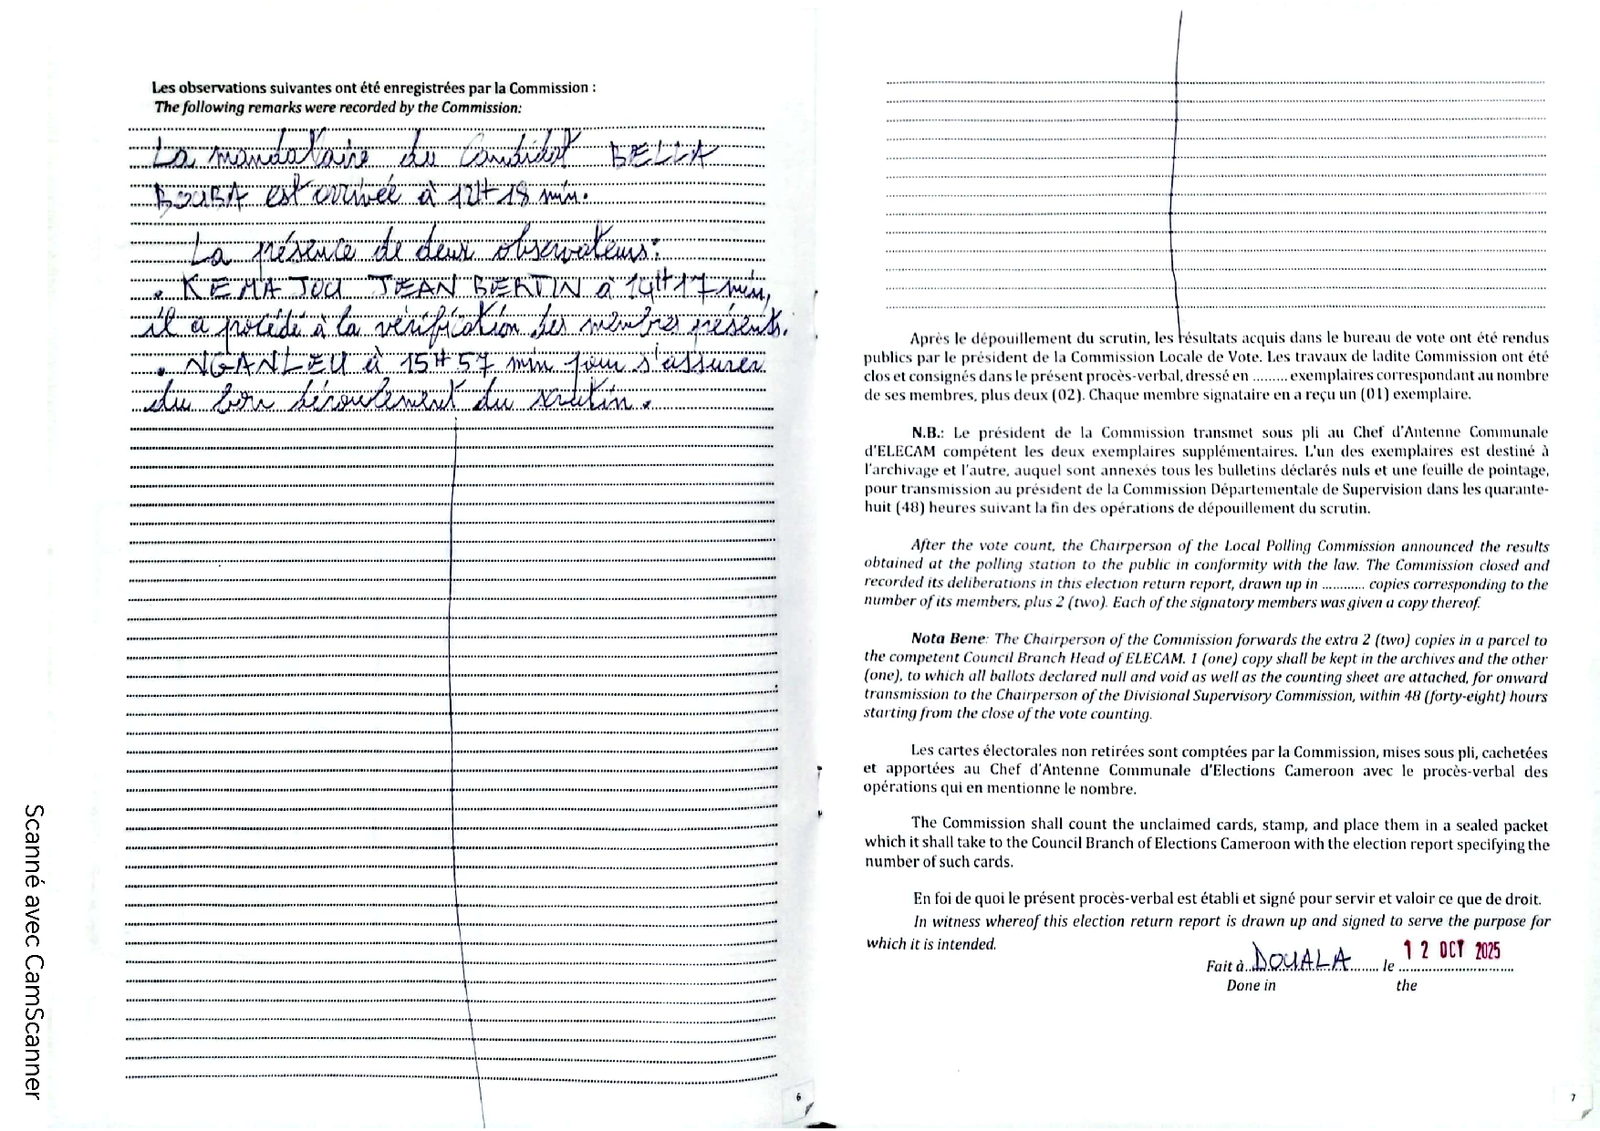 Les observations suivantes ont été enregistrées par la Commission :
The following remarks were recorded by the Commission:
La mandataire du Candidat BELLA
BOUBA est arrivée à 12H 18 min.
La présence de deux observateurs:
. KEMAJOU JEAN BERTIN à 14H17 min,
il a procédé à la vérification des membres présents.
. NGANLEU à 15H57 min pour s'assurer
du bon déroulement du scrutin.
6
Scanné avec CamScanner
Après le dépouillement du scrutin, les résultats acquis dans le bureau de vote ont été rendus
publics par le président de la Commission Locale de Vote. Les travaux de ladite Commission ont été
clos et consignés dans le présent procès-verbal, dressé en ......... exemplaires correspondant au nombre
de ses membres, plus deux (02). Chaque membre signataire en a reçu un (01) exemplaire.
N.B.: Le président de la Commission transmet sous pli au Chef d'Antenne Communale
d'ELECAM compétent les deux exemplaires supplémentaires. L'un des exemplaires est destiné à
l'archivage et l'autre, auquel sont annexés tous les bulletins déclarés nuls et une feuille de pointage,
pour transmission au président de la Commission Départementale de Supervision dans les quarante-
huit (48) heures suivant la fin des opérations de dépouillement du scrutin.
After the vote count, the Chairperson of the Local Polling Commission announced the results
obtained at the polling station to the public in conformity with the law. The Commission closed and
recorded its deliberations in this election return report, drawn up in ........... copies corresponding to the
number of its members, plus 2 (two). Each of the signatory members was given a copy thereof.
Nota Bene: The Chairperson of the Commission forwards the extra 2 (two) copies in a parcel to
the competent Council Branch Head of ELECAM. 1 (one) copy shall be kept in the archives and the other
(one), to which all ballots declared null and void as well as the counting sheet are attached, for onward
transmission to the Chairperson of the Divisional Supervisory Commission, within 48 (forty-eight) hours
starting from the close of the vote counting.
Les cartes électorales non retirées sont comptées par la Commission, mises sous pli, cachetées
et apportées au Chef d'Antenne Communale d'Elections Cameroon avec le procès-verbal des
opérations qui en mentionne le nombre.
The Commission shall count the unclaimed cards, stamp, and place them in a sealed packet
which it shall take to the Council Branch of Elections Cameroon with the election report specifying the
number of such cards.
En foi de quoi le présent procès-verbal est établi et signé pour servir et valoir ce que de droit.
In witness whereof this election return report is drawn up and signed to serve the purpose for
which it is intended.
Fait à DOUALA le 12 OCT 2025
Done in the
7